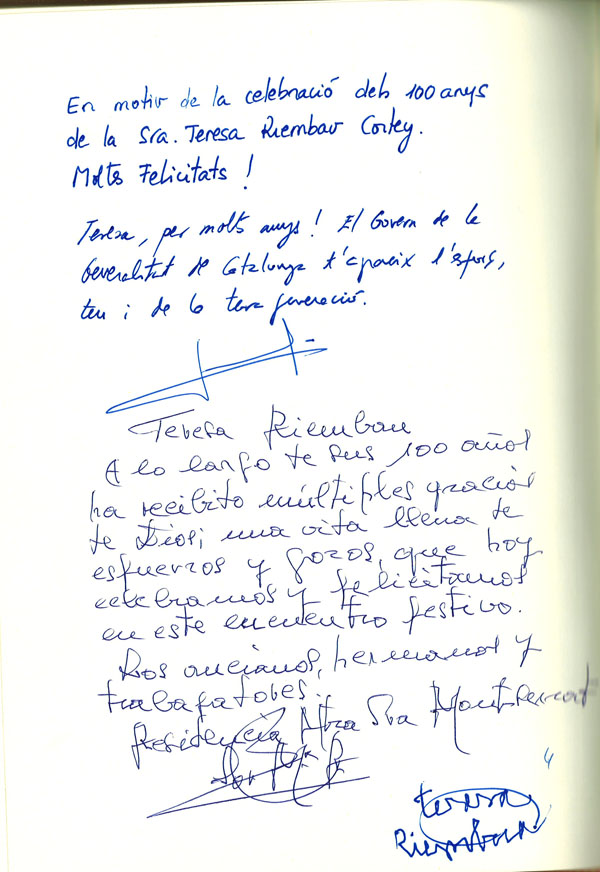 En motiu de la celebració dels 100 anys
de la Sra. Teresa Riembau Cortey.
Molts Felicitats !
Teresa, per molts anys ! El Govern de la
Generalitat de Catalunya t'agraeix l'esforç,
teu i de la teva generació.
Teresa Riembau
A lo largo de sus 100 años
ha recibido múltiples gracias
de Dios; una vida llena de
esfuerzos y gozos, que hoy
celebramos y felicitamos
en este encuentro festivo.
Los ancianos, hermanas y
trabajadores.
Residencia Ntra Sra Montserrat
Sor
4
teresa
Riembau